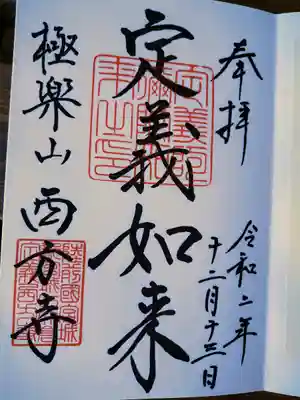 奉拝
令和二年
十二月十三日
定義如来
極樂山西方寺